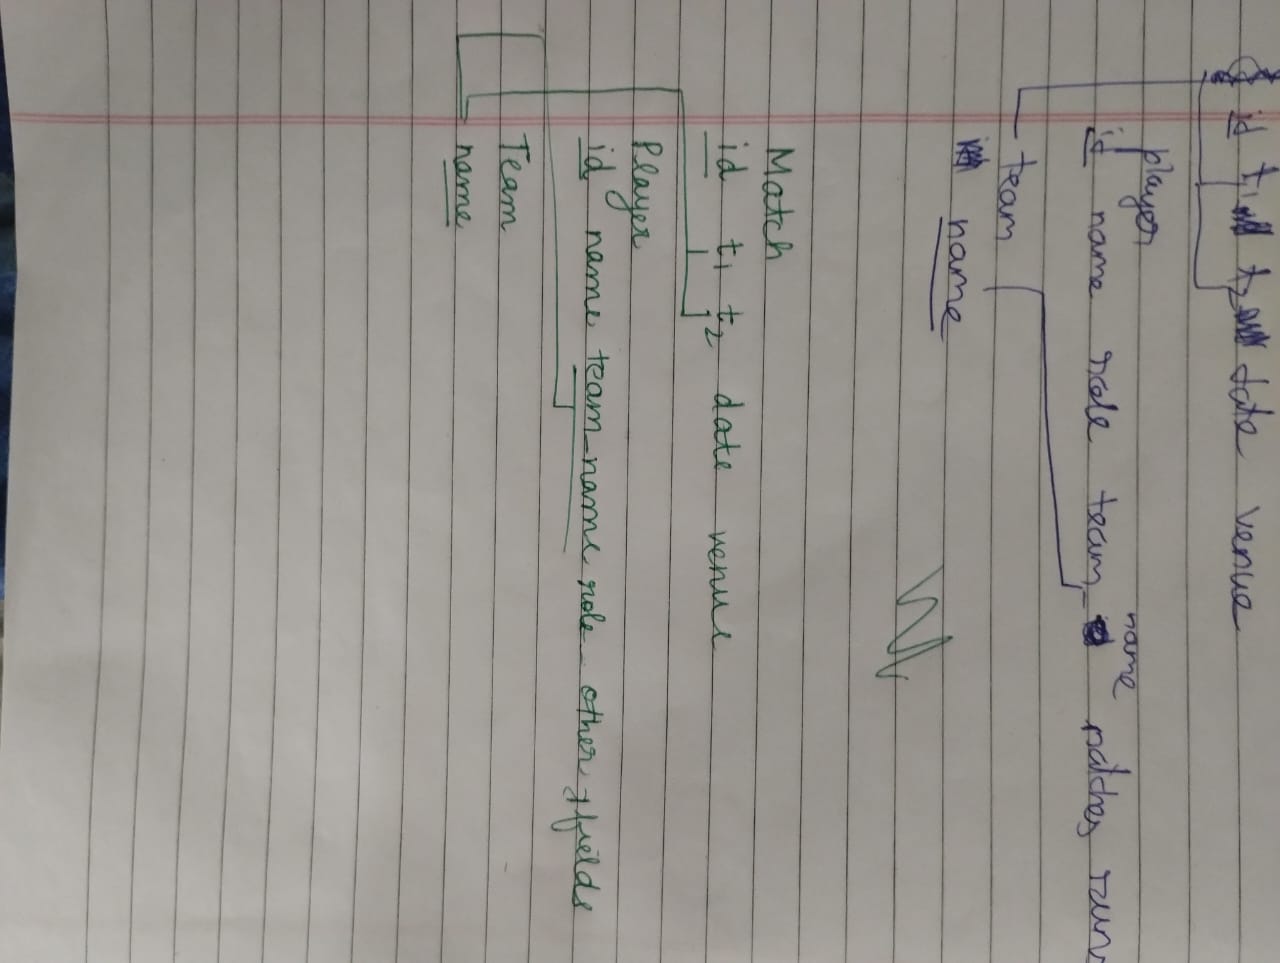 id t1 t2 date venue
player
name
id name role team_ matches runs
team
name
Match
id t1 t2 date venue
Player
id name team_name role other fields
Team
name